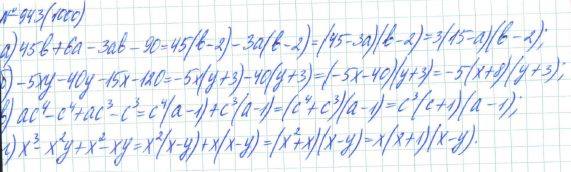 № 943(1000)
а) 45в + 6а - 3ав - 90 = 45(в-2) - 3а(в-2) = (45-3а)(в-2) = 3(15-а)(в-2);
б) -5xy - 40y - 15x - 120 = -5x(y+3) - 40(y+3) = (-5x-40)(y+3) = -5(x+8)(y+3);
в) ac⁴ - c⁴ + ac³ - c³ = c⁴(a-1) + c³(a-1) = (c⁴+c³)(a-1) = c³(c+1)(a-1);
г) x³ - x²y + x² - xy = x²(x-y) + x(x-y) = (x²+x)(x-y) = x(x+1)(x-y).